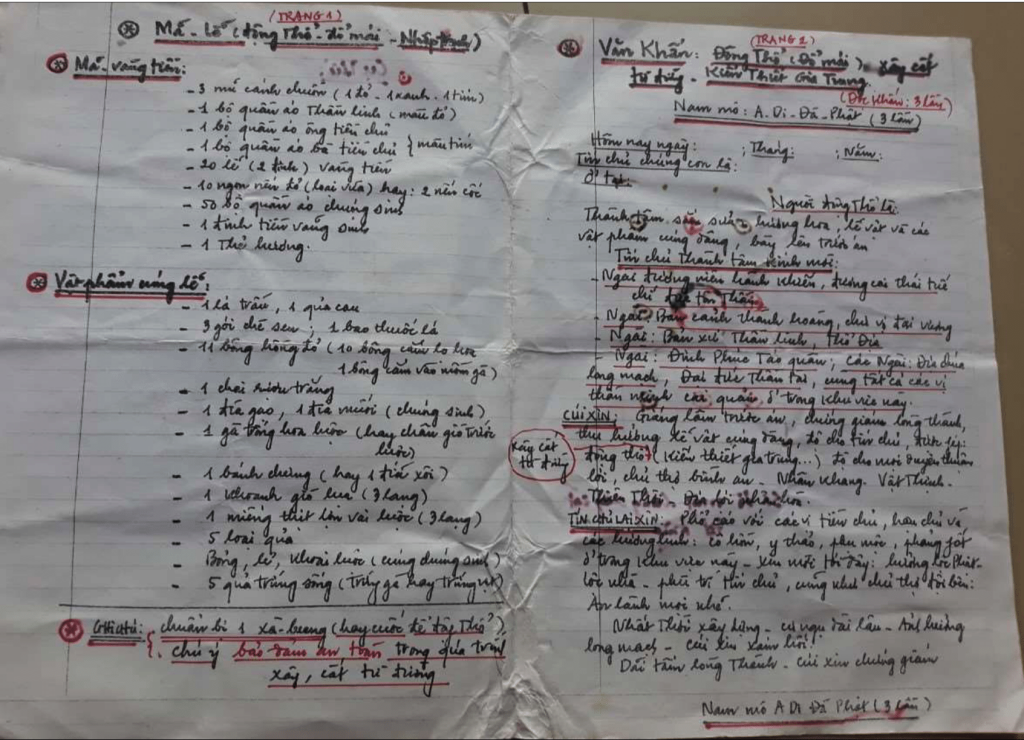 (TRANG 1)
Mã - lễ (động Thổ - đổ mái - Nhập trạch)
Mã - vàng tiền:
- 3 mũ cánh chuồn (1 đỏ - 1 xanh - 1 tím)
- 1 bộ quần áo Thần linh (màu đỏ)
- 1 bộ quần áo ông tiền chủ
- 1 bộ quần áo bà tiền chủ } màu tím
- 20 lễ (2 đinh) vàng tiền
- 10 ngọn nến đỏ (loại vừa) hay: 2 nến cốc
- 50 bộ quần áo chúng sinh
- 1 đinh tiền vàng sinh
- 1 Thẻ hương.
Vật phẩm cúng lễ:
- 1 lá trầu, 1 quả cau
- 3 gói chè sen; 1 bao thuốc lá
- 11 bông hồng đỏ (10 bông cắm lọ hoa
1 bông cắm vào mồm gà)
- 1 chai rượu trắng
- 1 đĩa gạo, 1 đĩa muối (chúng sinh)
- 1 gà trống hoa luộc (hay chân giò trước
luộc)
- 1 bánh chưng (hay 1 đĩa xôi)
- 1 khoanh giò lụa (3 lạng)
- 1 miếng thịt lợn vai luộc (3 lạng)
- 5 loại quả
- Bỏng, lẻ, khoai luộc (cúng chúng sinh)
- 5 quả trứng sống (trứng gà hay trứng vịt)
Ghi chú: chuẩn bị 1 xà beng (hay cuốc để đào Thổ)
chú ý bảo đảm an toàn trong quá trình
xây, cất từ đường
(TRANG 2)
Văn Khấn: Động Thổ (Đổ mái) - xây cất
từ đường - Kiến Thiết Gia Trang
(Đọc khấn: 3 lần)
Nam mô: A - Di - Đà - Phật (3 lần)
Hôm nay ngày: ; Tháng: ; Năm:
Tín chủ chúng con là:
ở tại:
Người động Thổ là:
Thành tâm sắm sửa hương hoa, lễ vật và các
vật phẩm cúng dâng, bày lên trước án
Tín chủ Thành tâm kính mời:
- Ngài đương niên hành khiển, đương cai thái tuế
chí đức tôn Thần
- Ngài: Bản cảnh thành hoàng, chư vị đại vương
- Ngài: Bản xứ Thần linh, Thổ Địa
- Ngài: Định Phúc Táo quân; các Ngài: Địa chúa
long mạch, Đại đức Thần tài, cùng tất cả các vị
thần minh cai quản, ở trong khu vực này.
CÚI XIN: Giáng lâm trước án, chứng giám lòng thành,
thụ hưởng lễ vật cúng dâng, độ cho tín chủ, được
Xây cất
từ đường
động thổ (kiến thiết gia trung...) độ cho mọi duyên thuận
lợi, chủ thợ bình an - Nhân khang. Vật Thịnh.
Thiên Thời - Địa lợi nhân hòa.
TÍN CHỦ LẠI XIN: Phổ cáo với các vị tiền chủ, hậu chủ và
các hương linh: cô hồn, y thảo, phụ mộc, phảng phất
ở trong khu vực này - xin mời tới đây: hưởng lộc Phật -
lộc nhà - phù trì tín chủ, cùng như chủ thợ đôi bên:
An lành mọi nhẽ.
Nhất Thời xây dựng - cư ngụ dài lâu - Ảnh hưởng
long mạch - cúi xin xám hối.
Dãi tấm lòng Thành - cúi xin chứng giám
Nam mô A Di Đà Phật (3 lần)